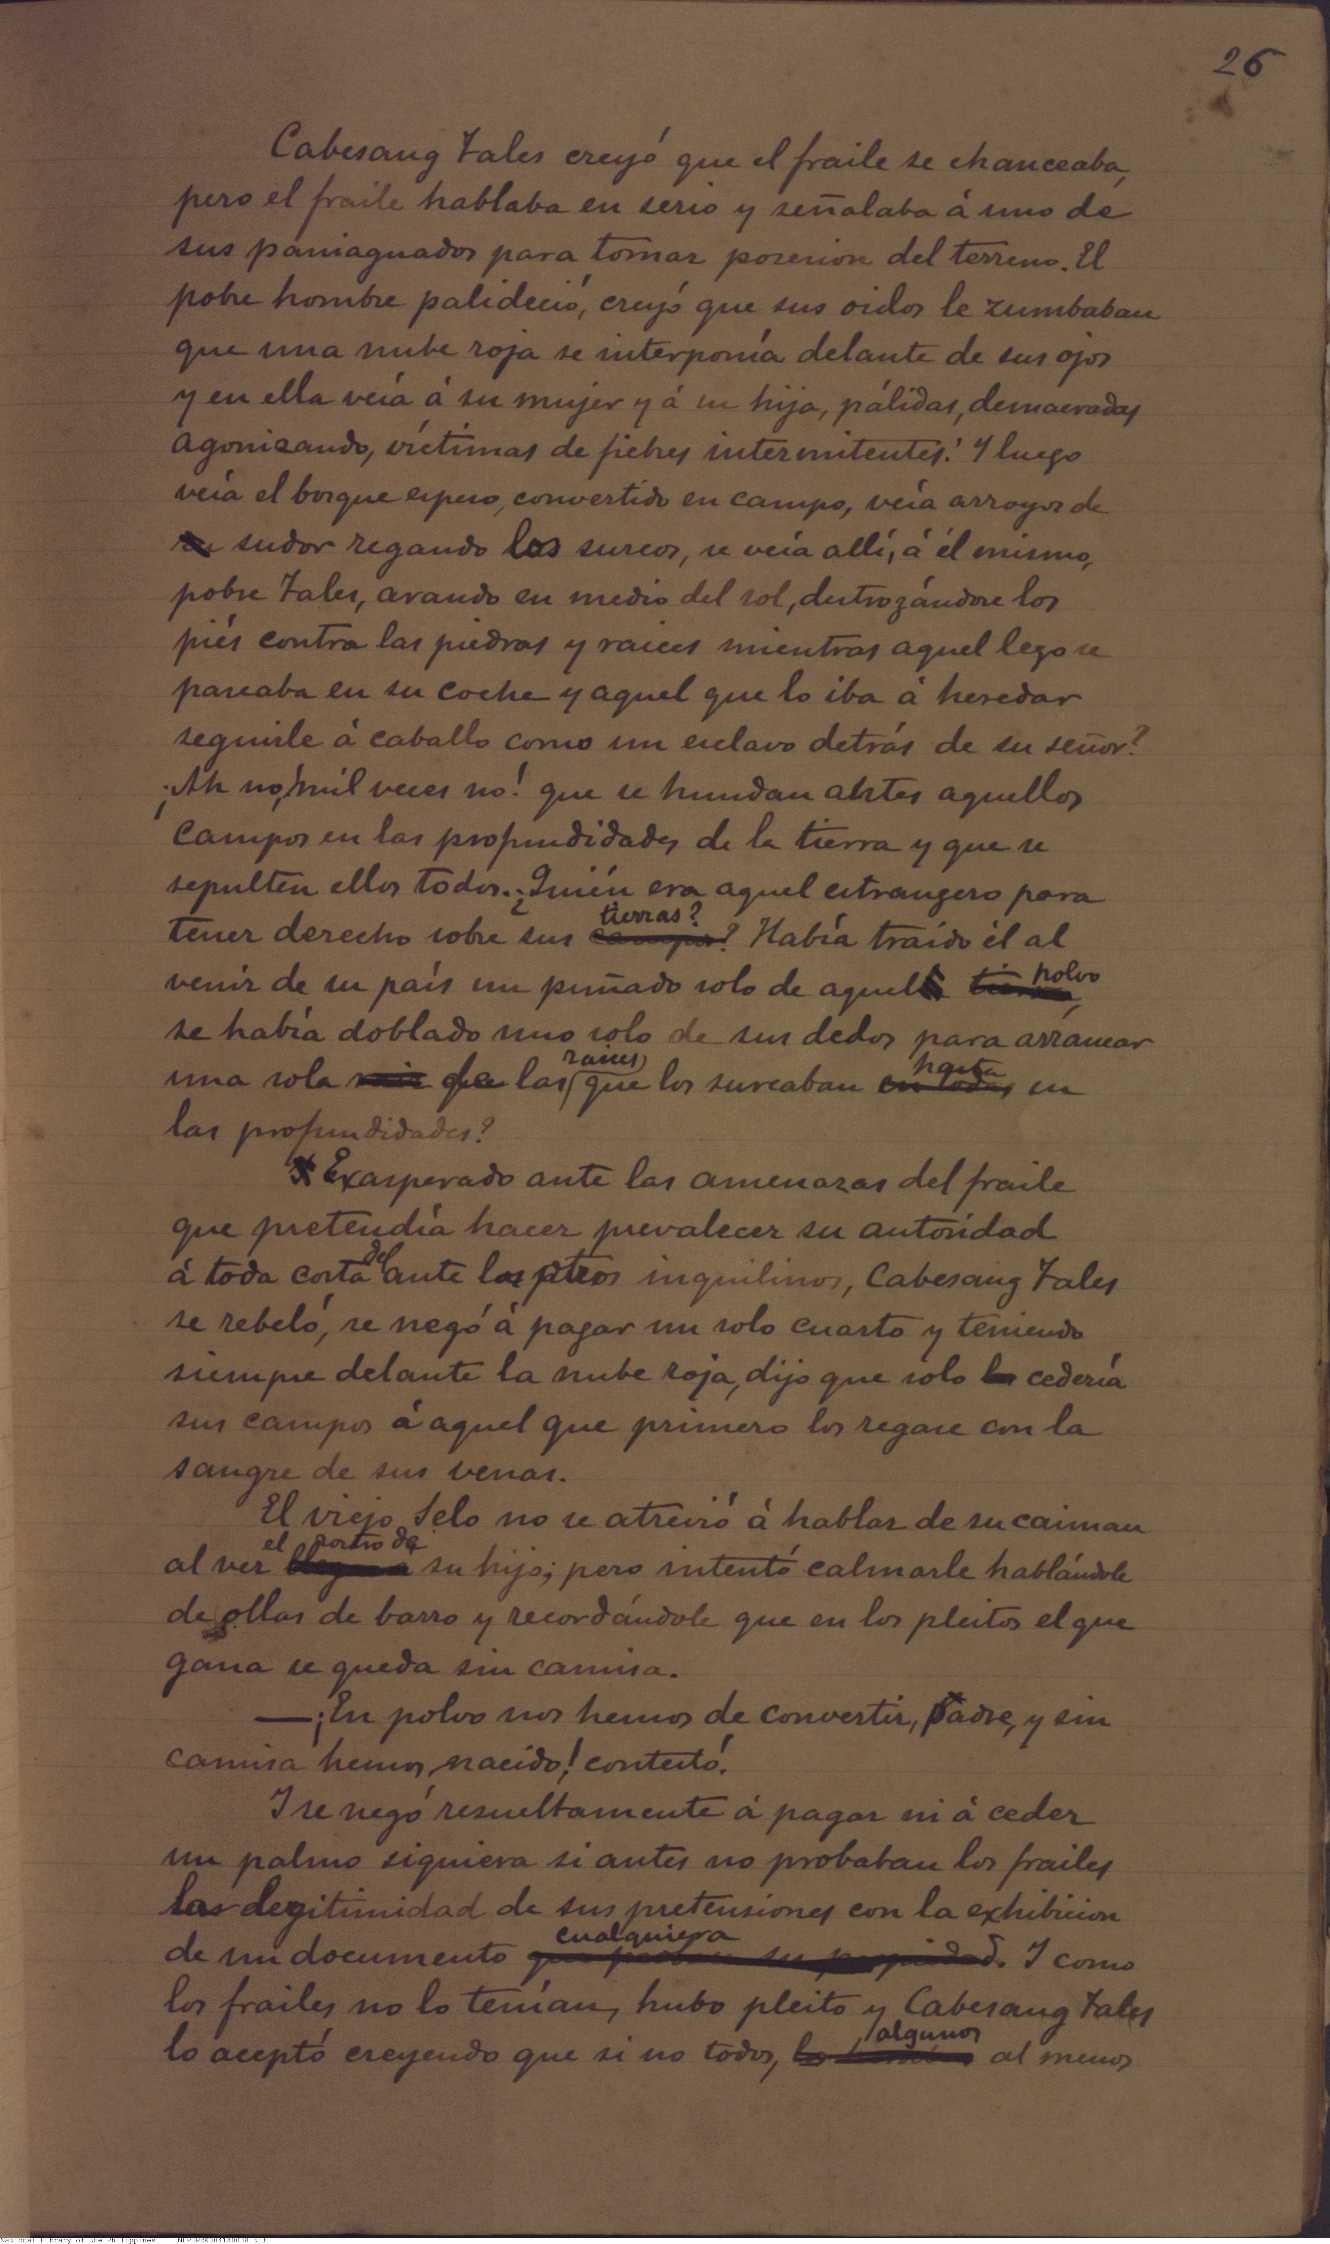 26
Cabesang Tales creyó que el fraile se chanceaba,
pero el fraile hablaba en serio y señalaba á uno de
sus paniaguados para tomar posesion del terreno. El
pobre hombre palideció, creyó que sus oidos le zumbaban
que una nube roja se interponía delante de sus ojos
y en ella veía á su mujer y á su hija, pálidas, demacradas
agonizando, víctimas de fiebres intermitentes! Y luego
veía el bosque espeso, convertido en campo, veía arroyos de
sudor regando los surcos, se veía allí, á él mismo,
pobre Tales, arando en medio del sol, destrozándose los
piés contra las piedras y raices mientras aquel lego se
paseaba en su coche y aquel que lo iba á heredar
seguirle á caballo como un esclavo detrás de su señor?
¡Ah no, ¡mil veces no! que se hundan antes aquellos
campos en las profundidades de la tierra y que se
sepulten ellos todos. ¿Quién era aquel estrangero para
tierras?
tener derecho sobre sus campos? Había traido él al
polvo
venir de su país un puñado solo de aquel tierra,
se había doblado uno solo de sus dedos para arrancar
raices hasta
una sola raiz de las que los surcaban en todas en
las profundidades?
Exasperado ante las amenazas del fraile
que pretendía hacer prevalecer su autoridad
del
á toda costa ante los otros inquilinos, Cabesang Tales
se rebeló, se negó á pagar un solo cuarto y teniendo
siempre delante la nube roja, dijo que solo cedería
sus campos á aquel que primero los regase con la
sangre de sus venas.
El viejo Selo no se atrevió á hablar de su caiman
el rostro de
al ver su hijo; pero intentó calmarle hablándole
de ollas de barro y recordándole que en los pleitos el que
gana se queda sin camisa.
—¡En polvo nos hemos de convertir, padre, y sin
camisa hemos nacido! contestó.
Y se negó resueltamente á pagar ni á ceder
un palmo siquiera si antes no probaban los frailes
la legitimidad de sus pretensiones con la exhibicion
cualquiera
de un documento que su propiedad. Y como
los frailes no lo tenían, hubo pleito y Cabesang Tales
algunos
lo aceptó creyendo que si no todos, al menos